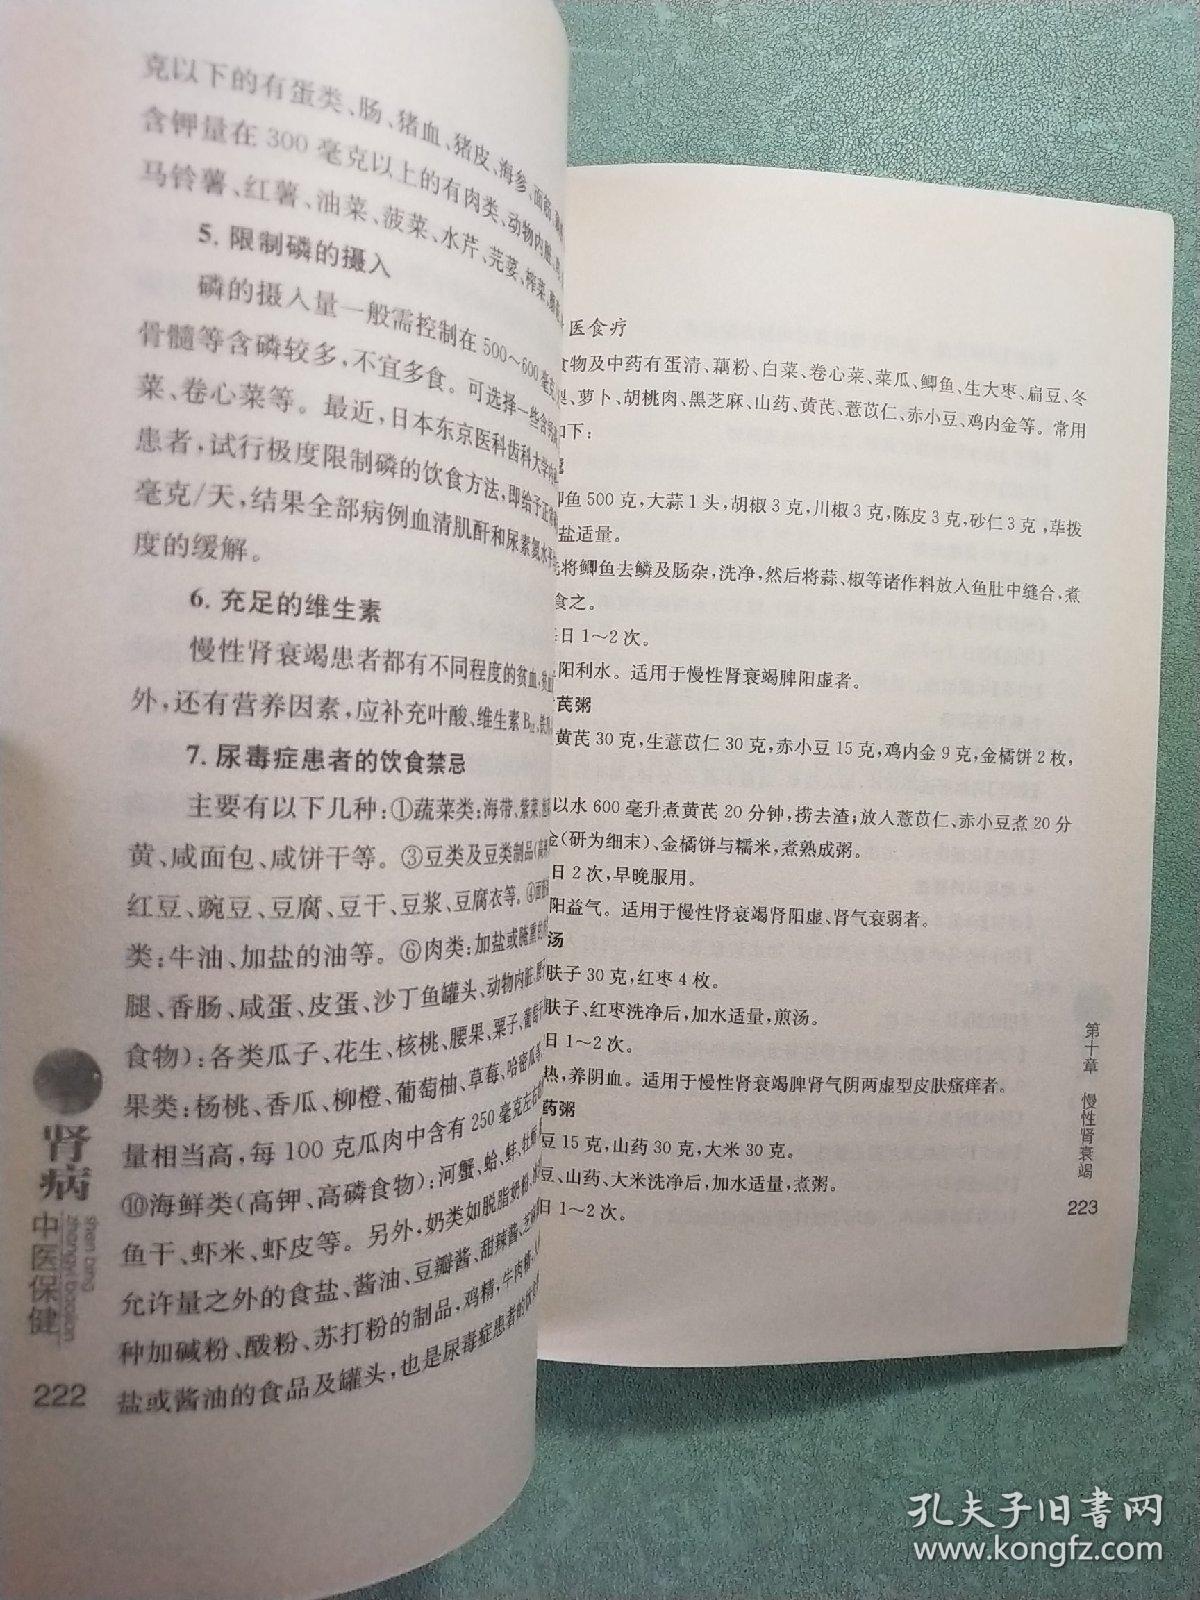 克以下的有蛋类、肠、猪血、猪皮、海参、面筋、
含钾量在300毫克以上的有肉类、动物内脏、
马铃薯、红薯、油菜、菠菜、水芹、芫荽、榨菜、
5. 限制磷的摄入
磷的摄入量一般需控制在500～600毫克
骨髓等含磷较多，不宜多食。可选择一些含
菜、卷心菜等。最近，日本东京医科齿科大学
患者，试行极度限制磷的饮食方法，即给予正
毫克/天，结果全部病例血清肌酐和尿素氮水平
度的缓解。
6. 充足的维生素
慢性肾衰竭患者都有不同程度的贫血，
外，还有营养因素，应补充叶酸、维生素B12、铁
7. 尿毒症患者的饮食禁忌
主要有以下几种：①蔬菜类：海带、紫菜、
黄、咸面包、咸饼干等。③豆类及豆类制品（
红豆、豌豆、豆腐、豆干、豆浆、豆腐衣等。④
类：牛油、加盐的油等。⑥肉类：加盐或腌熏的
腿、香肠、咸蛋、皮蛋、沙丁鱼罐头、动物内脏、
食物）：各类瓜子、花生、核桃、腰果、栗子、葡萄干
果类：杨桃、香瓜、柳橙、葡萄柚、草莓、哈密瓜
量相当高，每100克瓜肉中含有250毫克左右
⑩海鲜类（高钾、高磷食物）：河蟹、蛤、蚌、牡蛎
鱼干、虾米、虾皮等。另外，奶类如脱脂奶粉、
允许量之外的食盐、酱油、豆瓣酱、甜辣酱、芝麻
种加碱粉、酸粉、苏打粉的制品，鸡精，牛肉精、
盐或酱油的食品及罐头，也是尿毒症患者的饮
肾病
中医保健
shen bing
zhongyi baojian
222
医食疗
食物及中药有蛋清、藕粉、白菜、卷心菜、菜瓜、鲫鱼、生大枣、扁豆、冬
、萝卜、胡桃肉、黑芝麻、山药、黄芪、薏苡仁、赤小豆、鸡内金等。常用
如下：
鲫鱼500克，大蒜1头，胡椒3克，川椒3克，陈皮3克，砂仁3克，荜拨
盐适量。
先将鲫鱼去鳞及肠杂，洗净，然后将蒜、椒等诸作料放入鱼肚中缝合，煮
食之。
每日1～2次。
阳利水。适用于慢性肾衰竭脾阳虚者。
芪粥
黄芪30克，生薏苡仁30克，赤小豆15克，鸡内金9克，金橘饼2枚，
以水600毫升煮黄芪20分钟，捞去渣；放入薏苡仁、赤小豆煮20分
金（研为细末）、金橘饼与糯米，煮熟成粥。
日2次，早晚服用。
阳益气。适用于慢性肾衰竭肾阳虚、肾气衰弱者。
汤
肤子30克，红枣4枚。
肤子、红枣洗净后，加水适量，煎汤。
日1～2次。
热，养阴血。适用于慢性肾衰竭脾肾气阴两虚型皮肤瘙痒者。
药粥
豆15克，山药30克，大米30克。
豆、山药、大米洗净后，加水适量，煮粥。
日1～2次。
第十章 慢性肾衰竭
223
孔夫子旧书网
www.kongfz.com